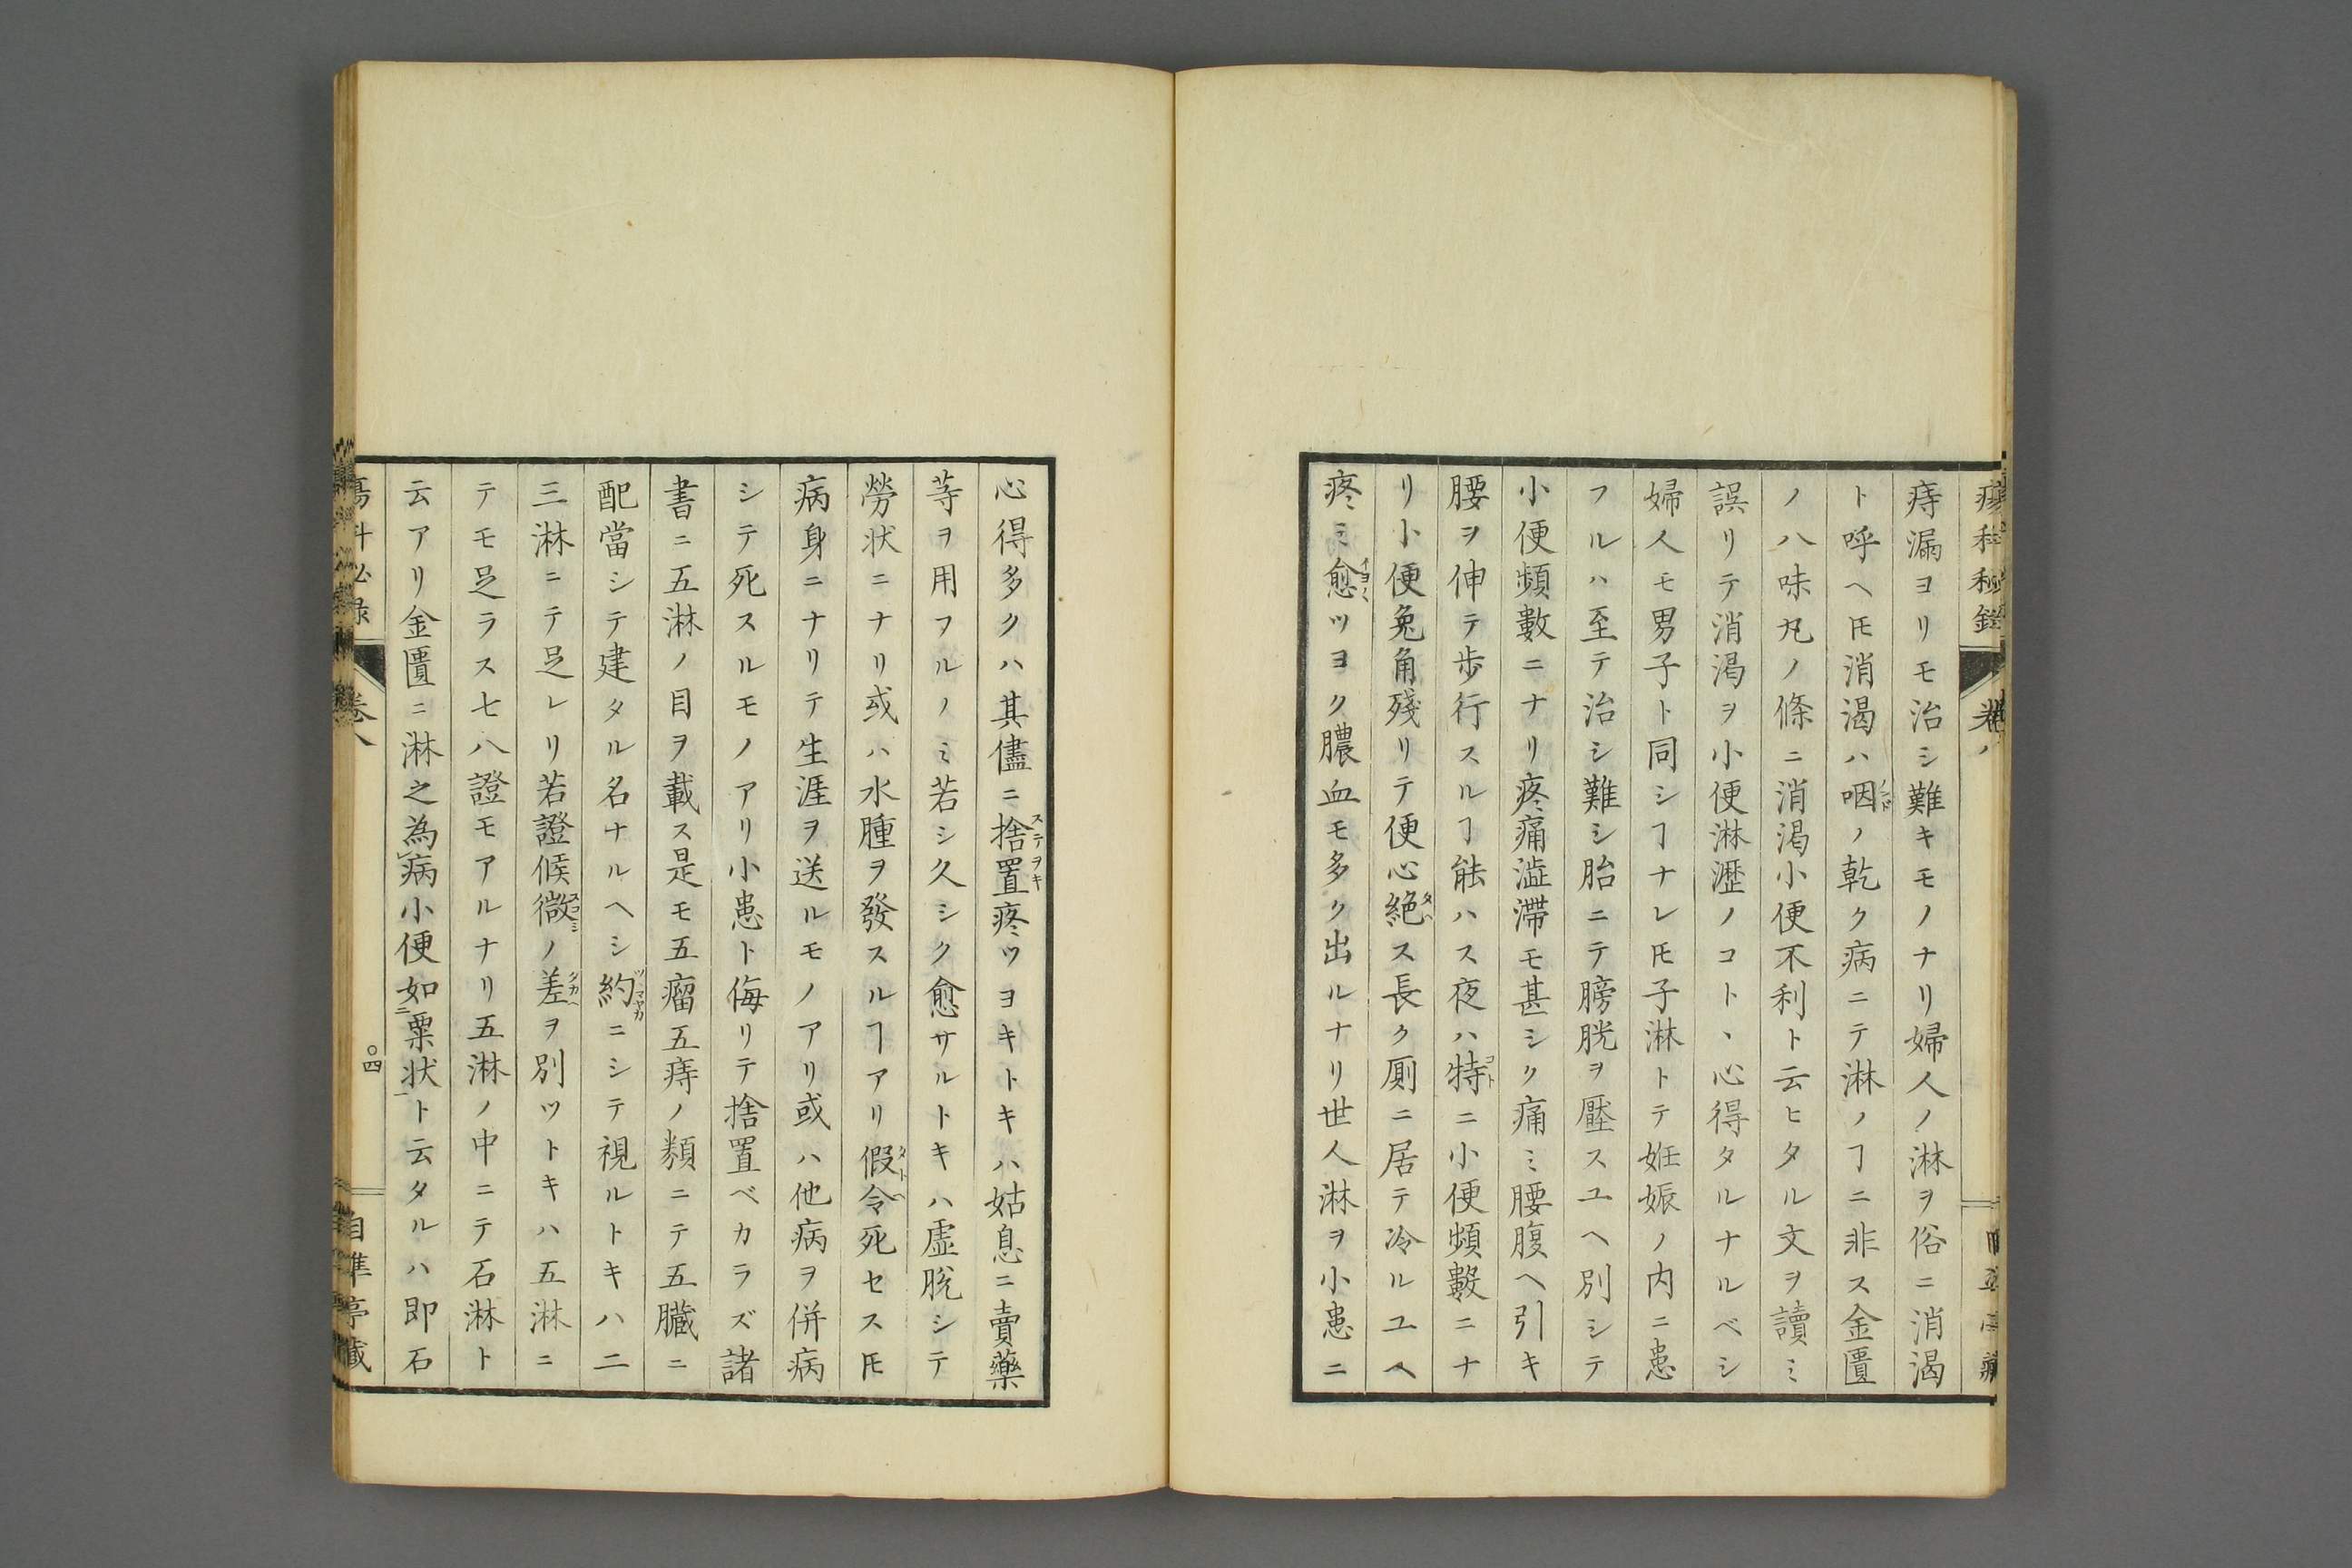 瘍科秘録
痔漏ヨリモ治シ難キモノナリ婦人ノ淋ヲ俗ニ消渇
ト呼ヘ𪜈消渇ハ咽ノ乾ク病ニテ淋ノヿニ非ス金匱
ノンド
ノ八味丸ノ條ニ消渇小便不利ト云ヒタル文ヲ讀ミ
誤リテ消渇ヲ小便淋瀝ノコト、心得タルナルベシ
婦人モ男子ト同シヿナレ𪜈子淋トテ姙娠ノ内ニ患
フルハ至テ治シ難シ胎ニテ膀胱ヲ壓スユヘ別シテ
小便頻數ニナリ疼痛澁滞モ甚シク痛ミ腰腹ヘ引キ
腰ヲ伸テ歩行スルヿ能ハス夜ハ特ニ小便頻數ニナ
コト
リ小便兔角殘リテ便心絶ス長ク厠ニ居テ冷ルユヘ
タヘ
疼ミ愈ツヨク膿血モ多ク出ルナリ世人淋ヲ小患ニ
心得多クハ其儘ニ捨置疼ツヨキトキハ姑息ニ賣藥
ステヲキ
等ヲ用フルノミ若シ久シク愈サルトキハ虚脱シテ
勞状ニナリ或ハ水腫ヲ發スルヿアリ假令死セス𪜈
タトヘ
病身ニナリテ生涯ヲ送ルモノアリ或ハ他病ヲ併病
シテ死スルモノアリ小患ト侮リテ捨置ベカラズ諸
書ニ五淋ノ目ヲ載ス是モ五瘤五痔ノ類ニテ五臓ニ
配當シテ建タル名ナルヘシ約ニシテ視ルトキハ二
ツマヤカ
三淋ニテ足レリ若證候微ノ差ヲ別ツトキハ五淋ニ
スコシミ タカヘ
テモ足ラス七八證モアルナリ五淋ノ中ニテ石淋ト
云アリ金匱ニ淋之為病小便如粟状ト云タルハ即石
二 一
卷八
〇四
自準亭藏